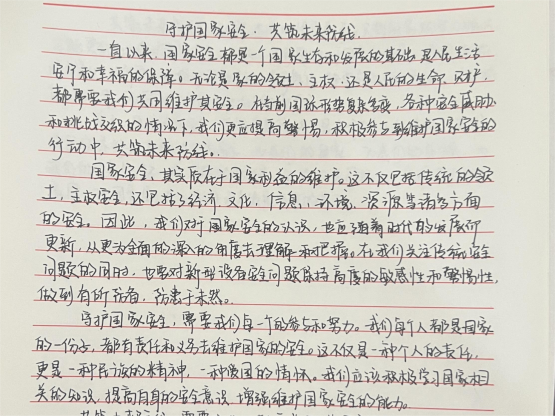 守护国家安全·共筑未来防线.
一直以来,国家安全都是一个国家生存和发展的基础,是人民生活
安宁和幸福的保障。无论是国家的领土、主权,还是人民的生命、财产,
都需要我们共同维护其安全。在当前国际形势复杂多变,各种安全威胁
和挑战交织的情况下,我们更应提高警惕,积极参与到维护国家安全的
行动中,共筑未来防线。
国家安全,其实质在于国家利益的维护。这不仅包括传统的领
土,主权安全,还包括了经济、文化、信息、环境、资源等诸多方面
的安全。因此,我们对于国家安全的认识,也应随着时代的发展而
更新,从更为全面的深入的角度去理解和把握。在我们关注传统安全
问题的同时,也要对新型设备安全问题保持高度的敏感性和警惕性,
做到有所防备,防患于未然。
守护国家安全,需要我们每一个的参与和努力。我们每个人都是国家
的一份子,都有责任和义务去维护国家的安全。这不仅是一种个人的责任,
更是一种民族的精神,一种爱国的情怀。我们应该积极学习国家相
关的知识,提高自身的安全意识,增强维护国家安全的能力。